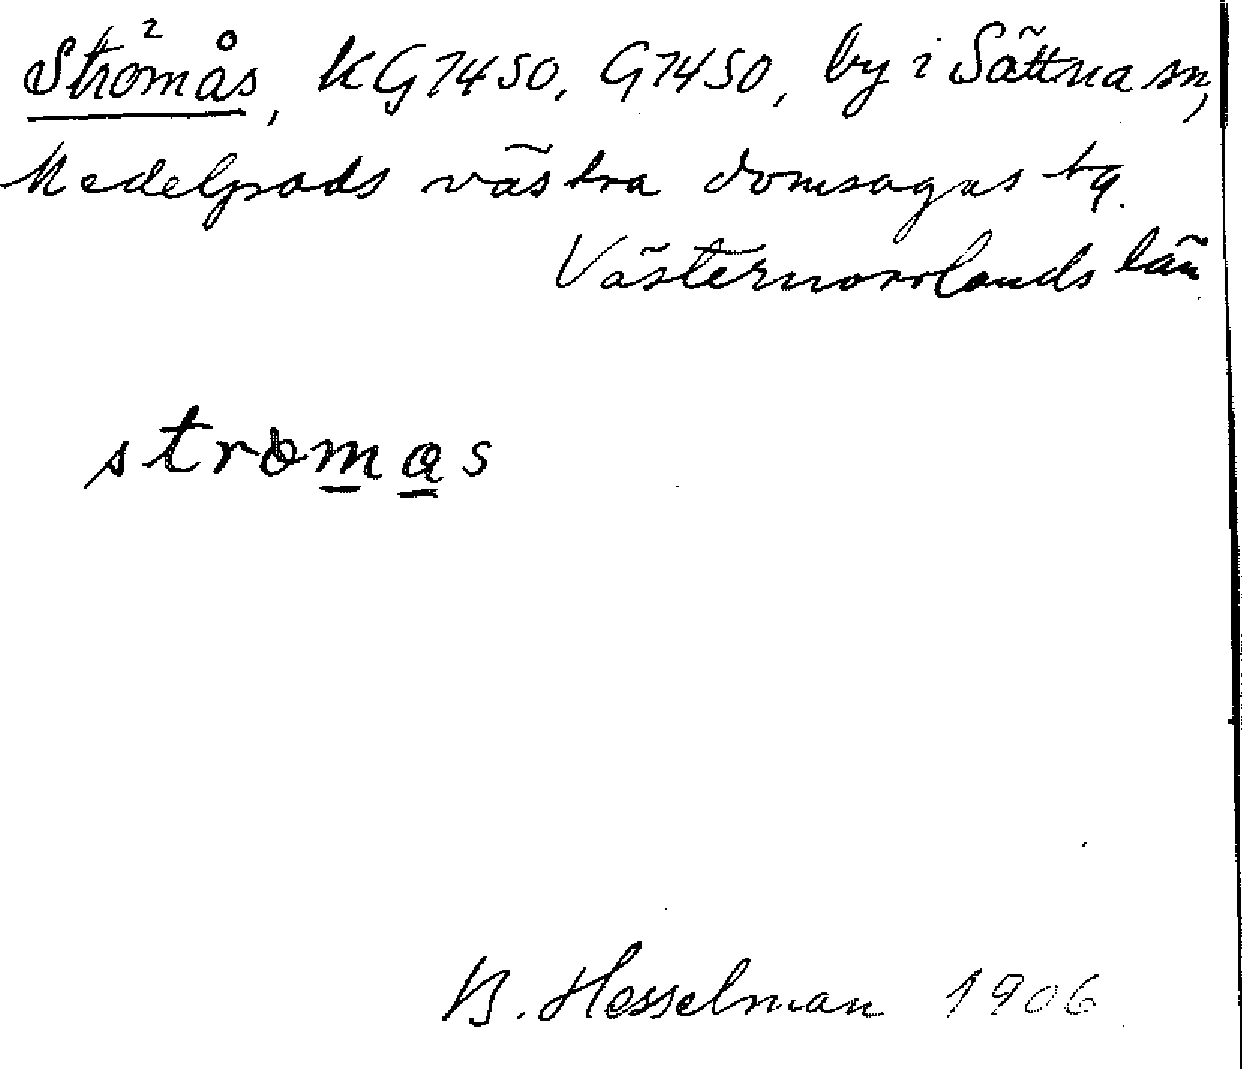 Strömås, KG7450, G7450, by i Sättna sn,
Medelpads västra domsagas tg.
Västernorrlands län
strömas
B. Hesselman 1906